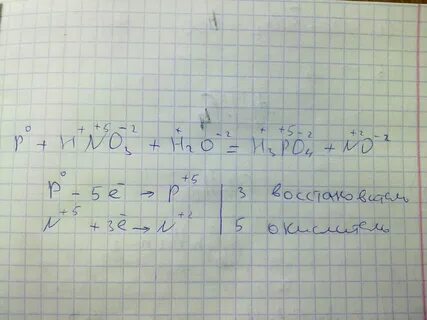 P⁰ + H⁺N⁺⁵O₃⁻² + H₂⁺O⁻² = H₃⁺P⁺⁵O₄⁻² + N⁺²O⁻²
P⁰ - 5e̅ → P⁺⁵ | 3 восстановитель
N⁺⁵ + 3e̅ → N⁺² | 5 окислитель